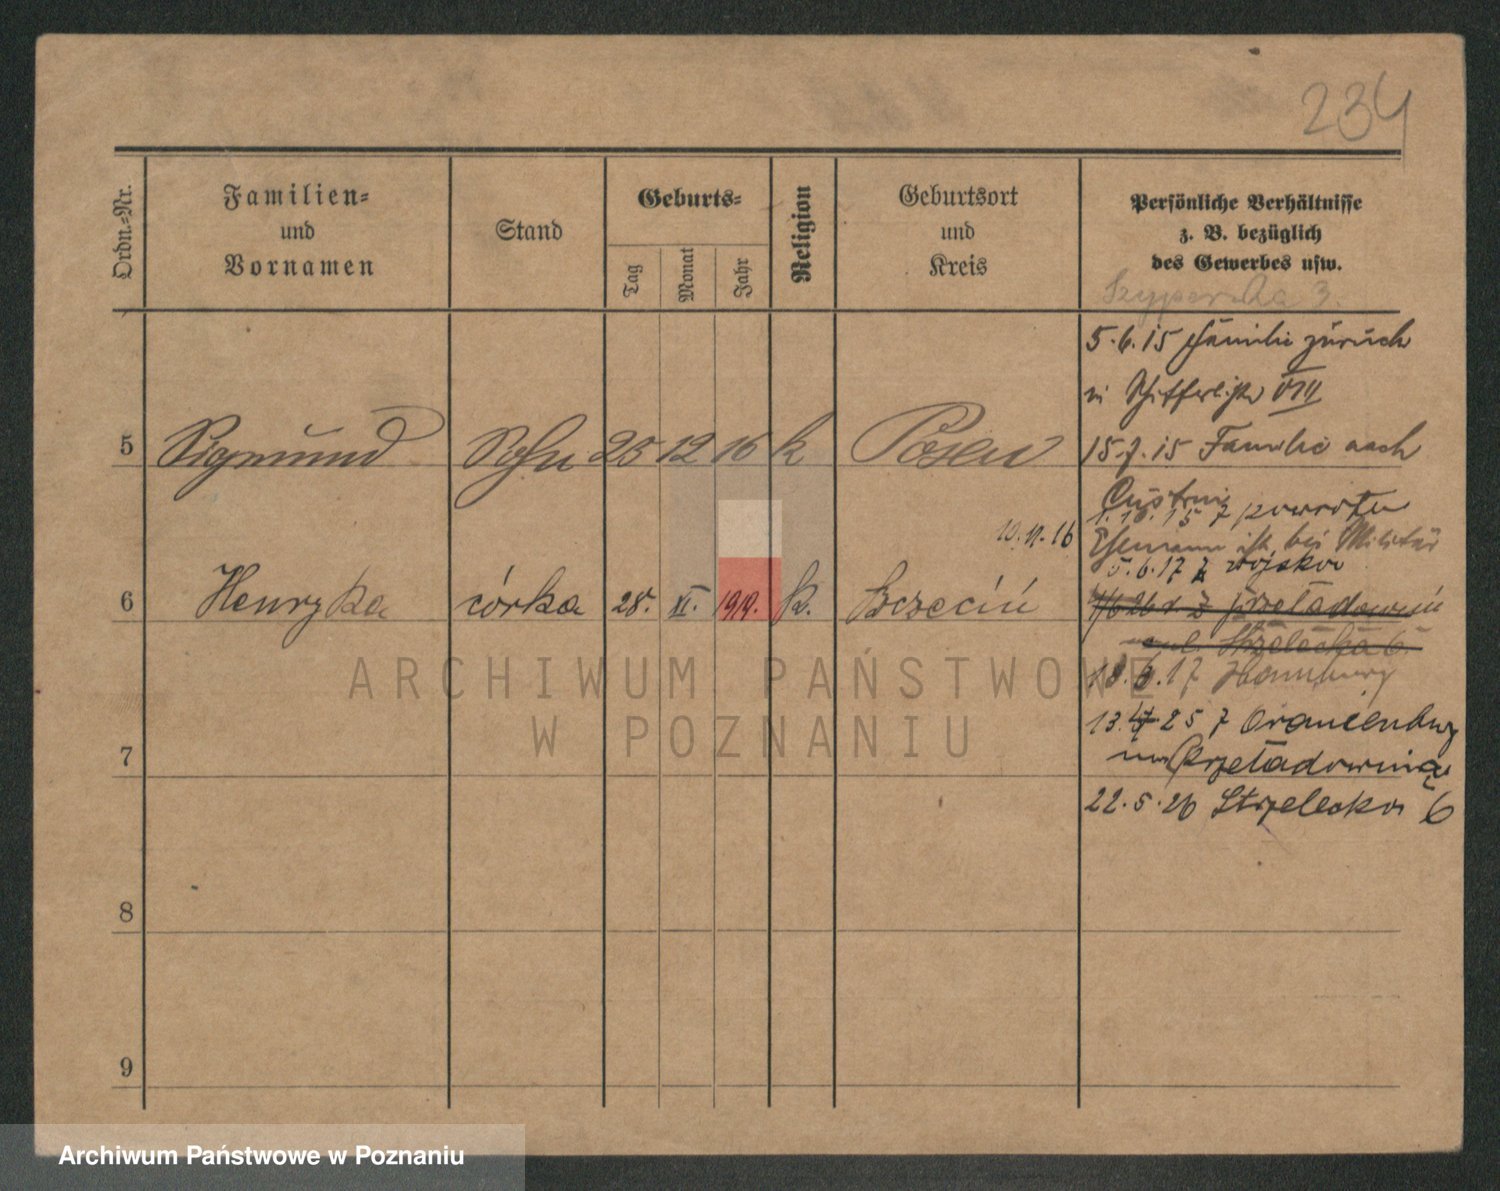 234
Ordn.-Nr.
Familien-
und
Vornamen
Stand
Geburts-
Tag
Monat
Jahr
Religion
Geburtsort
und
Kreis
Persönliche Verhältnisse
z. B. bezüglich
des Gewerbes usw.
3.
5.6.15 Familie zurück
in Schifferliste VIII
5 Sigmund Sohn 25 12 16 k Posen
15.7.15 Familie nach
Cüstrin
1.10.15 z powrotu
10.11.16
Ehemann ist bei Militär
5.6.17 z wojska
6 Henryka córka 28. XI. 1919. k. Szczecin
z przeładowni
ul. Strzelecka 6.
18.6.17 Hamburg
13. 25 z Oranienburg
7
na Przeładownią
22.5.26 Strzelecka 6
8
9
ARCHIWUM PAŃSTWOWE
W POZNANIU
Archiwum Państwowe w Poznaniu